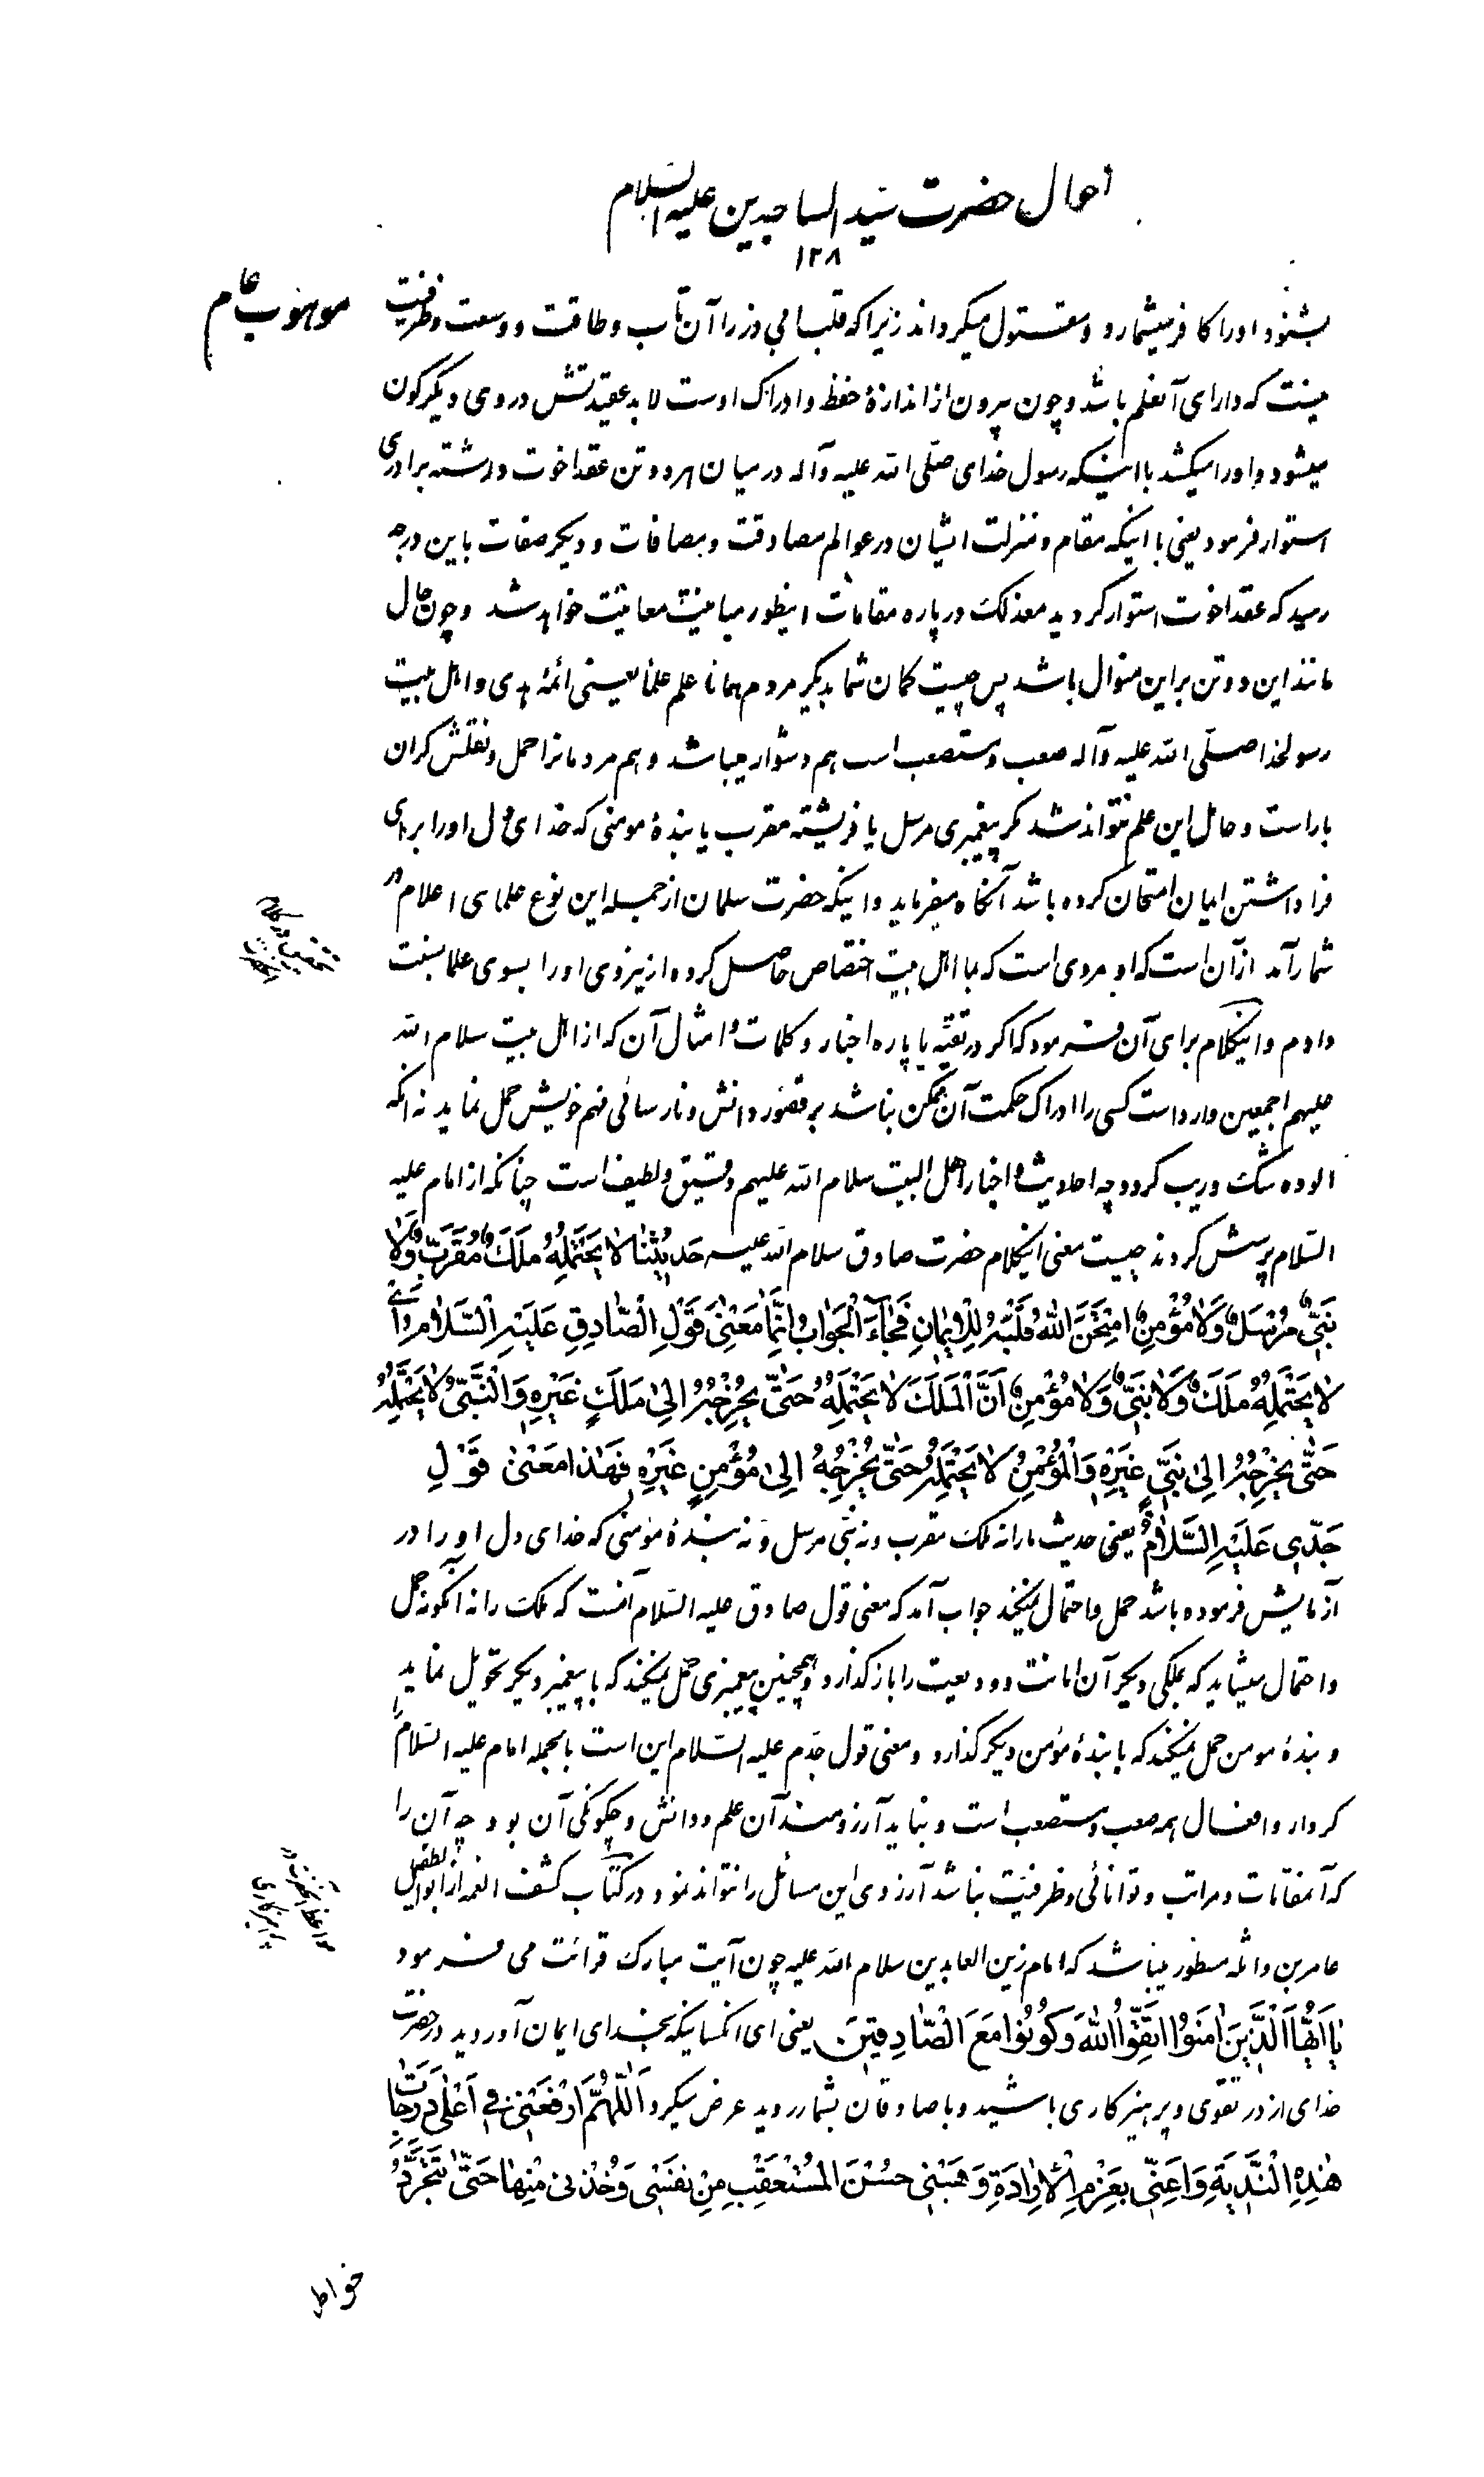 احوال حضرت سید الساجدین علیه السلام
۱۲۸
موهوب عام
بشنود او را کافر میشمارد و مقتول میگرداند زیرا که قلب ابی ذر را آن تاب و طاقت و وسعت و ظرفیت
نیست که دارای آنعلم باشد و چون بیرون از اندازهٔ حفظ و ادراک اوست لابد عقیدتش در وی دیگرگون
میشود و او را میکشد با اینکه رسول خدای صلّی الله علیه وآله در میان هر دو تن عقد اخوت و رشته برادری
استوار فرمود یعنی با اینکه مقام و منزلت ایشان در عوالم مصادقت و مصافات و دیگر صفات باین درجه
رسید که عقد اخوت استوار گردید معذلک در پاره مقامات اینطور مباینت معاینت خواهد شد و چون حال
مانند این دو تن بر این منوال باشد پس چیست گمان شما بدیگر مردم همانا علم علما یعنی ائمهٔ هدی و اهل بیت
رسولخدا صلّی الله علیه وآله صعب و مستصعب است هم دشوار میباشد و هم مردمانرا حمل و نقلش گران
بار است و حامل این علم نتواند شد مگر پیغمبری مرسل یا فریشته مقرب یا بندهٔ مومنی که خدای دل او را برای
فرا داشتن ایمان امتحان کرده باشد آنگاه میفرماید و اینکه حضرت سلمان از جمله این نوع علمای اعلام در
شمار آمد از آن است که او مردی است که با اهل بیت اختصاص حاصل کرده از نیروی او را بسوی علما نسبت
دادم و اینکلام برای آن فرمود که اگر در تقیّه یا پاره اخبار و کلمات و امثال آن که از اهل بیت سلام الله
علیهم اجمعین وارد است کسی را ادراک حکمت آن ممکن نباشد بر قصور دانش و نارسائی فهم خویش حمل نماید نه انکه
الوده شک و ریب گردد چه احادیث و اخبار اهل البیت سلام الله علیهم دقیق و لطیف است چنانکه از امام علیه
السّلام پرسش کردند چیست معنی اینکلام حضرت صادق سلام الله علیه حَدیثُنا لا یَحْتَمِلُهُ مَلَکٌ مُقَرَّبٌ وَلا
نَبِیٌّ مُرْسَلٌ وَلا مُؤْمِنٌ امْتَحَنَ اللّهُ قَلْبَهُ لِلْاِیمانِ فَجاءَ الْجَوابُ اِنَّما مَعْنی قَوْلِ الصّادِقِ عَلَیْهِ السَّلامُ اَیْ
لا یَحْتَمِلُهُ مَلَکٌ وَلا نَبِیٌّ وَلا مُؤْمِنٌ اَنَّ الْمَلَکَ لا یَحْتَمِلُهُ حَتّی یُخْرِجَهُ اِلی مَلَکٍ غَیْرِهِ وَالنَّبِیُّ لا یَحْتَمِلُهُ
حَتّی یُخْرِجَهُ اِلی نَبِیٍّ غَیْرِهِ وَالْمُؤْمِنُ لا یَحْتَمِلُهُ حَتّی یُخْرِجَهُ اِلی مُؤْمِنٍ غَیْرِهِ فَهَذا مَعْنی قَوْلِ
جَدّی عَلَیْهِ السَّلامُ یعنی حدیث ما را نه ملک مقرب و نه نبی مرسل و نه بندهٔ مومنی که خدای دل او را در
آزمایش فرموده باشد حمل و احتمال نمیکند جواب آمد که معنی قول صادق علیه السّلام آنست که ملک را نه آنگونه حمل
و احتمال میشاید که بملکی دیگر آن امانت و ودیعت را باز گذارد و همچنین پیغمبری حمل نمیکند که با پیغمبر دیگر تحویل نماید
و بندهٔ مومن حمل نمیکند که با بندهٔ مؤمن دیگر گذارد و معنی قول جدّم علیه السّلام این است بالجمله امام علیه السّلام
کردار و افعال همه صعب و مستصعب است و نباید آرزومند آن علم و دانش و چگونگی آن بود چه آن را
که آنمقامات و مراتب و توانائی و ظرفیت نباشد آرزوی این مسائل را نتواند نمود در کتاب کشف الغمه از ابوالطفیل
عامر بن واثله مسطور میباشد که امام زین العابدین سلام الله علیه چون آیت مبارک قرائت می فرمود
یا اَیُّهَا الَّذینَ امَنُوا اتَّقُوا اللّهَ وَکُونُوا مَعَ الصّادِقینَ یعنی ای انکسانیکه بخدای ایمان آوردید در حضرت
خدای از در تقوی و پرهیزکاری باشید و با صادقان بشمار روید عرض میکرد اَللّهُمَّ ارْفَعْنی فی اَعْلی دَرَجاتِ
هذِهِ النُّدْبَةِ وَاَعِنّی بِعَزْمِ الْاِرادَةِ وَهَبْنی حُسْنَ الْمُسْتَعْقَبِ مِنْ نَفْسی وَخُذْنی مِنْها حَتّی تَتَجَرَّدَ
خواطر